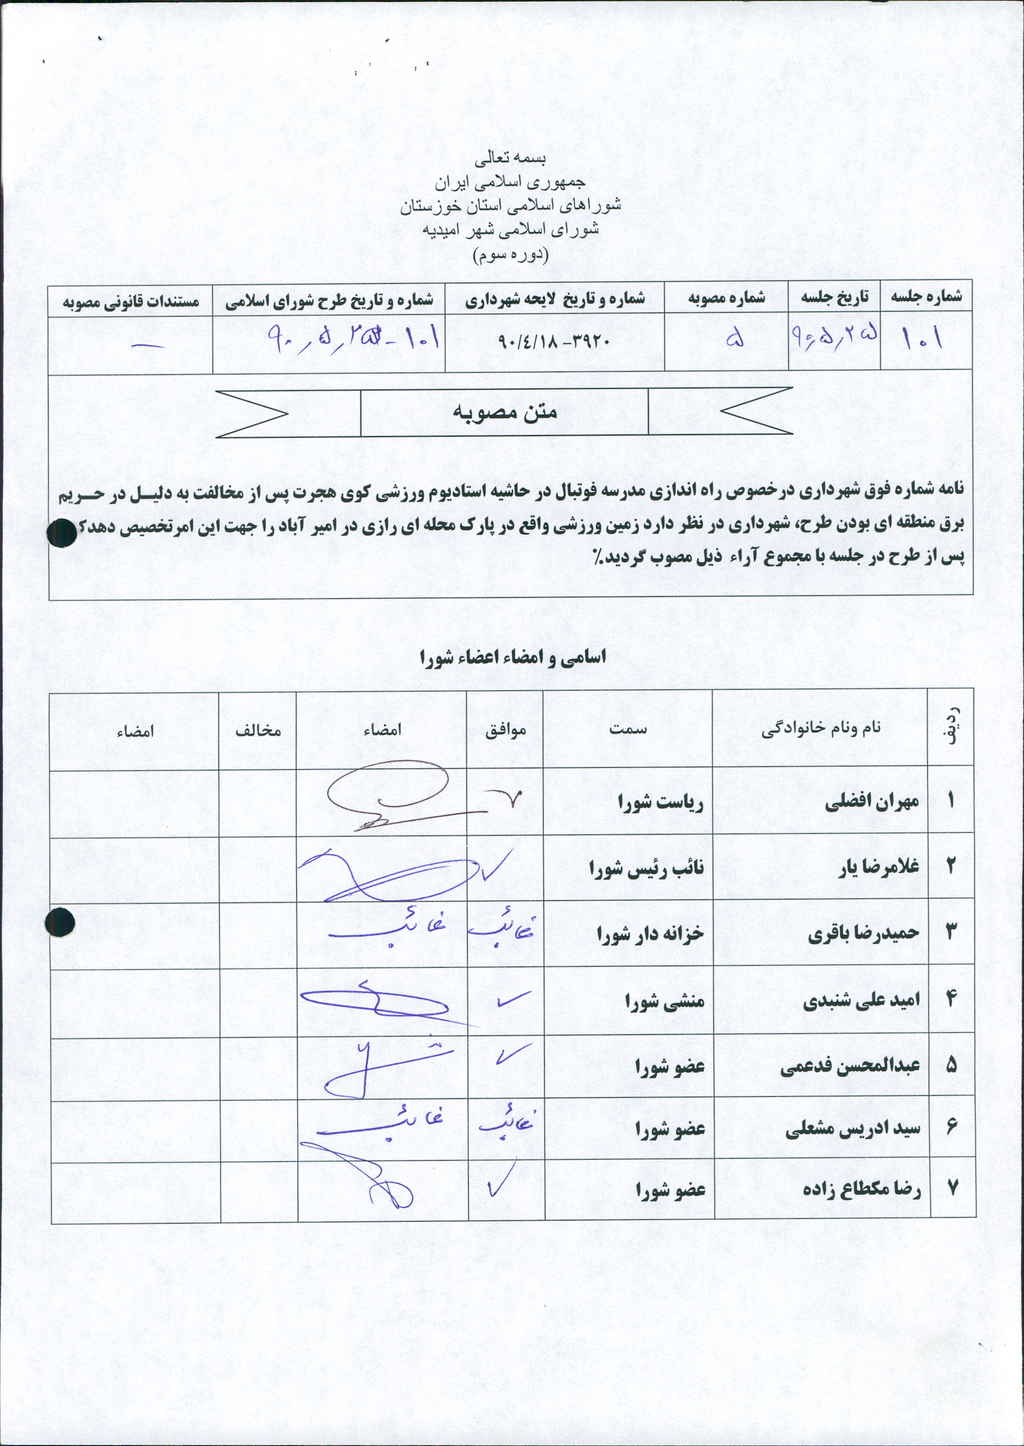 بسمه تعالی
جمهوری اسلامی ایران
شوراهای اسلامی استان خوزستان
شورای اسلامی شهر امیدیه
(دوره سوم)
شماره جلسه تاریخ جلسه شماره مصوبه شماره و تاریخ لایحه شهرداری شماره و تاریخ طرح شورای اسلامی مستندات قانونی مصوبه
۱۰۱ ۹۰،۵،۲۵ ۵ ۳۹۲۰-۹۰/٤/۱۸ ۱۰۱-۹۰،۵،۲۵ —
متن مصوبه
نامه شماره فوق شهرداری درخصوص راه اندازی مدرسه فوتبال در حاشیه استادیوم ورزشی کوی هجرت پس از مخالفت به دلیـل در حـریم
برق منطقه ای بودن طرح، شهرداری در نظر دارد زمین ورزشی واقع در پارک محله ای رازی در امیر آباد را جهت این امرتخصیص دهدکه
پس از طرح در جلسه با مجموع آراء ذیل مصوب گردید.٪
اسامی و امضاء اعضاء شورا
ردیف نام ونام خانوادگی سمت موافق امضاء مخالف امضاء
۱ مهران افضلی ریاست شورا ✓
۲ غلامرضا یار نائب رئیس شورا ✓
۳ حمیدرضا باقری خزانه دار شورا غائب غائب
۴ امید علی شنبدی منشی شورا ✓
۵ عبدالمحسن فدعمی عضو شورا ✓
۶ سید ادریس مشعلی عضو شورا غائب غائب
۷ رضا مکطاع زاده عضو شورا ✓